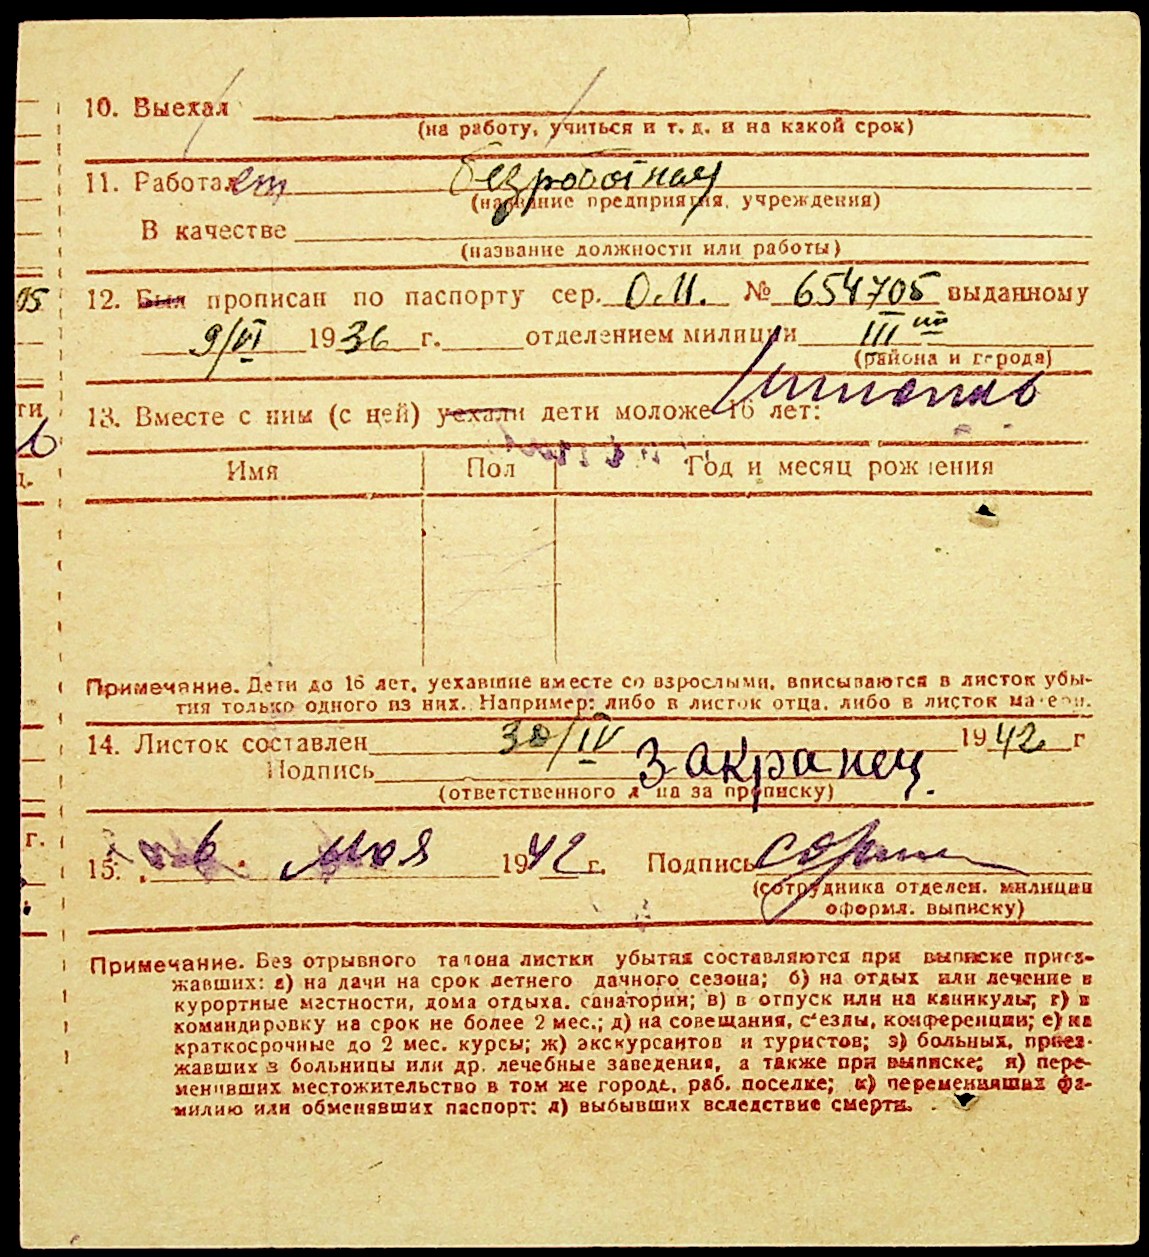 10. Выехал
(на работу, учиться и т. д. и на какой срок)
11. Работает безроботная
(название предприятия, учреждения)
В качестве
(название должности или работы)
05
12. Был прописан по паспорту сер. О.М. № 654705 выданному
9/VI 1936 г. отделением милиции III
(района и города)
13. Вместе с ним (с ней) уехали дети моложе 16 лет:
Имя Пол Год и месяц рождения
Примечание. Дети до 16 лет, уехавшие вместе со взрослыми, вписываются в листок убы-
тия только одного из них. Например: либо в листок отца, либо в листок матери.
14. Листок составлен 30/IV 1942 г
Подпись Закранец.
(ответственного лица за прописку)
г.
15. 6 мая 1942 г. Подпись
(сотрудника отделен. милиции
оформл. выписку)
Примечание. Без отрывного талона листки убытия составляются при выписке приез-
жавших: а) на дачи на срок летнего дачного сезона; б) на отдых или лечение в
курортные местности, дома отдыха, санатории; в) в отпуск или на каникулы; г) в
командировку на срок не более 2 мес.; д) на совещания, с'езды, конференции; е) на
краткосрочные до 2 мес. курсы; ж) экскурсантов и туристов; з) больных, приез-
жавших в больницы или др. лечебные заведения, а также при выписке; и) пере-
менивших местожительство в том же городе, раб. поселке; к) переменивших фа-
милию или обменявших паспорт; л) выбывших вследствие смерти.